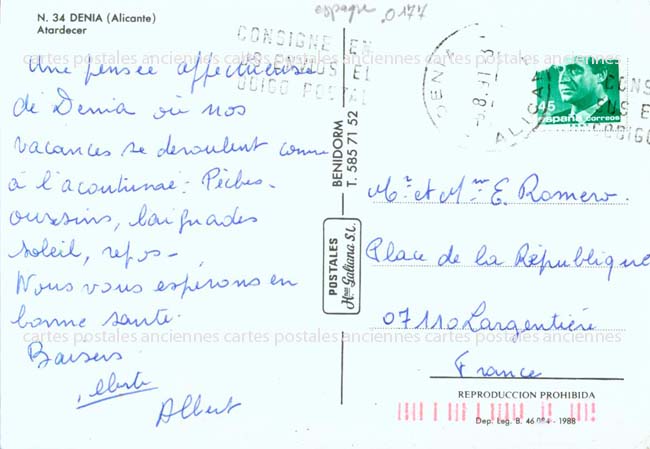 N. 34 DENIA (Alicante)
Atardecer
espagne 0177
CONSIGNE EN
SUS ENVIOS EL
CODIGO POSTAL
DENIA
ALICANTE
45
España correos
cartes postales anciennes cartes postales anciennes cartes postales anciennes
Une pensée affectueuse
de Denia où nos
vacances se déroulent comme
à l'acoutumé : Pêches -
oursins, baignades
soleil, repos -
Nous vous espérons en
bonne santé.
Baisers
Albert
BENIDORM
T. 585 71 52
POSTALES
Hnos Galiana S.L.
Mr et Mme E. Romero.
Place de la République
07110 Largentière
France
cartes postales anciennes cartes postales anciennes cartes postales anciennes
REPRODUCCION PROHIBIDA
Dep. Leg. B. 46 984 - 1988